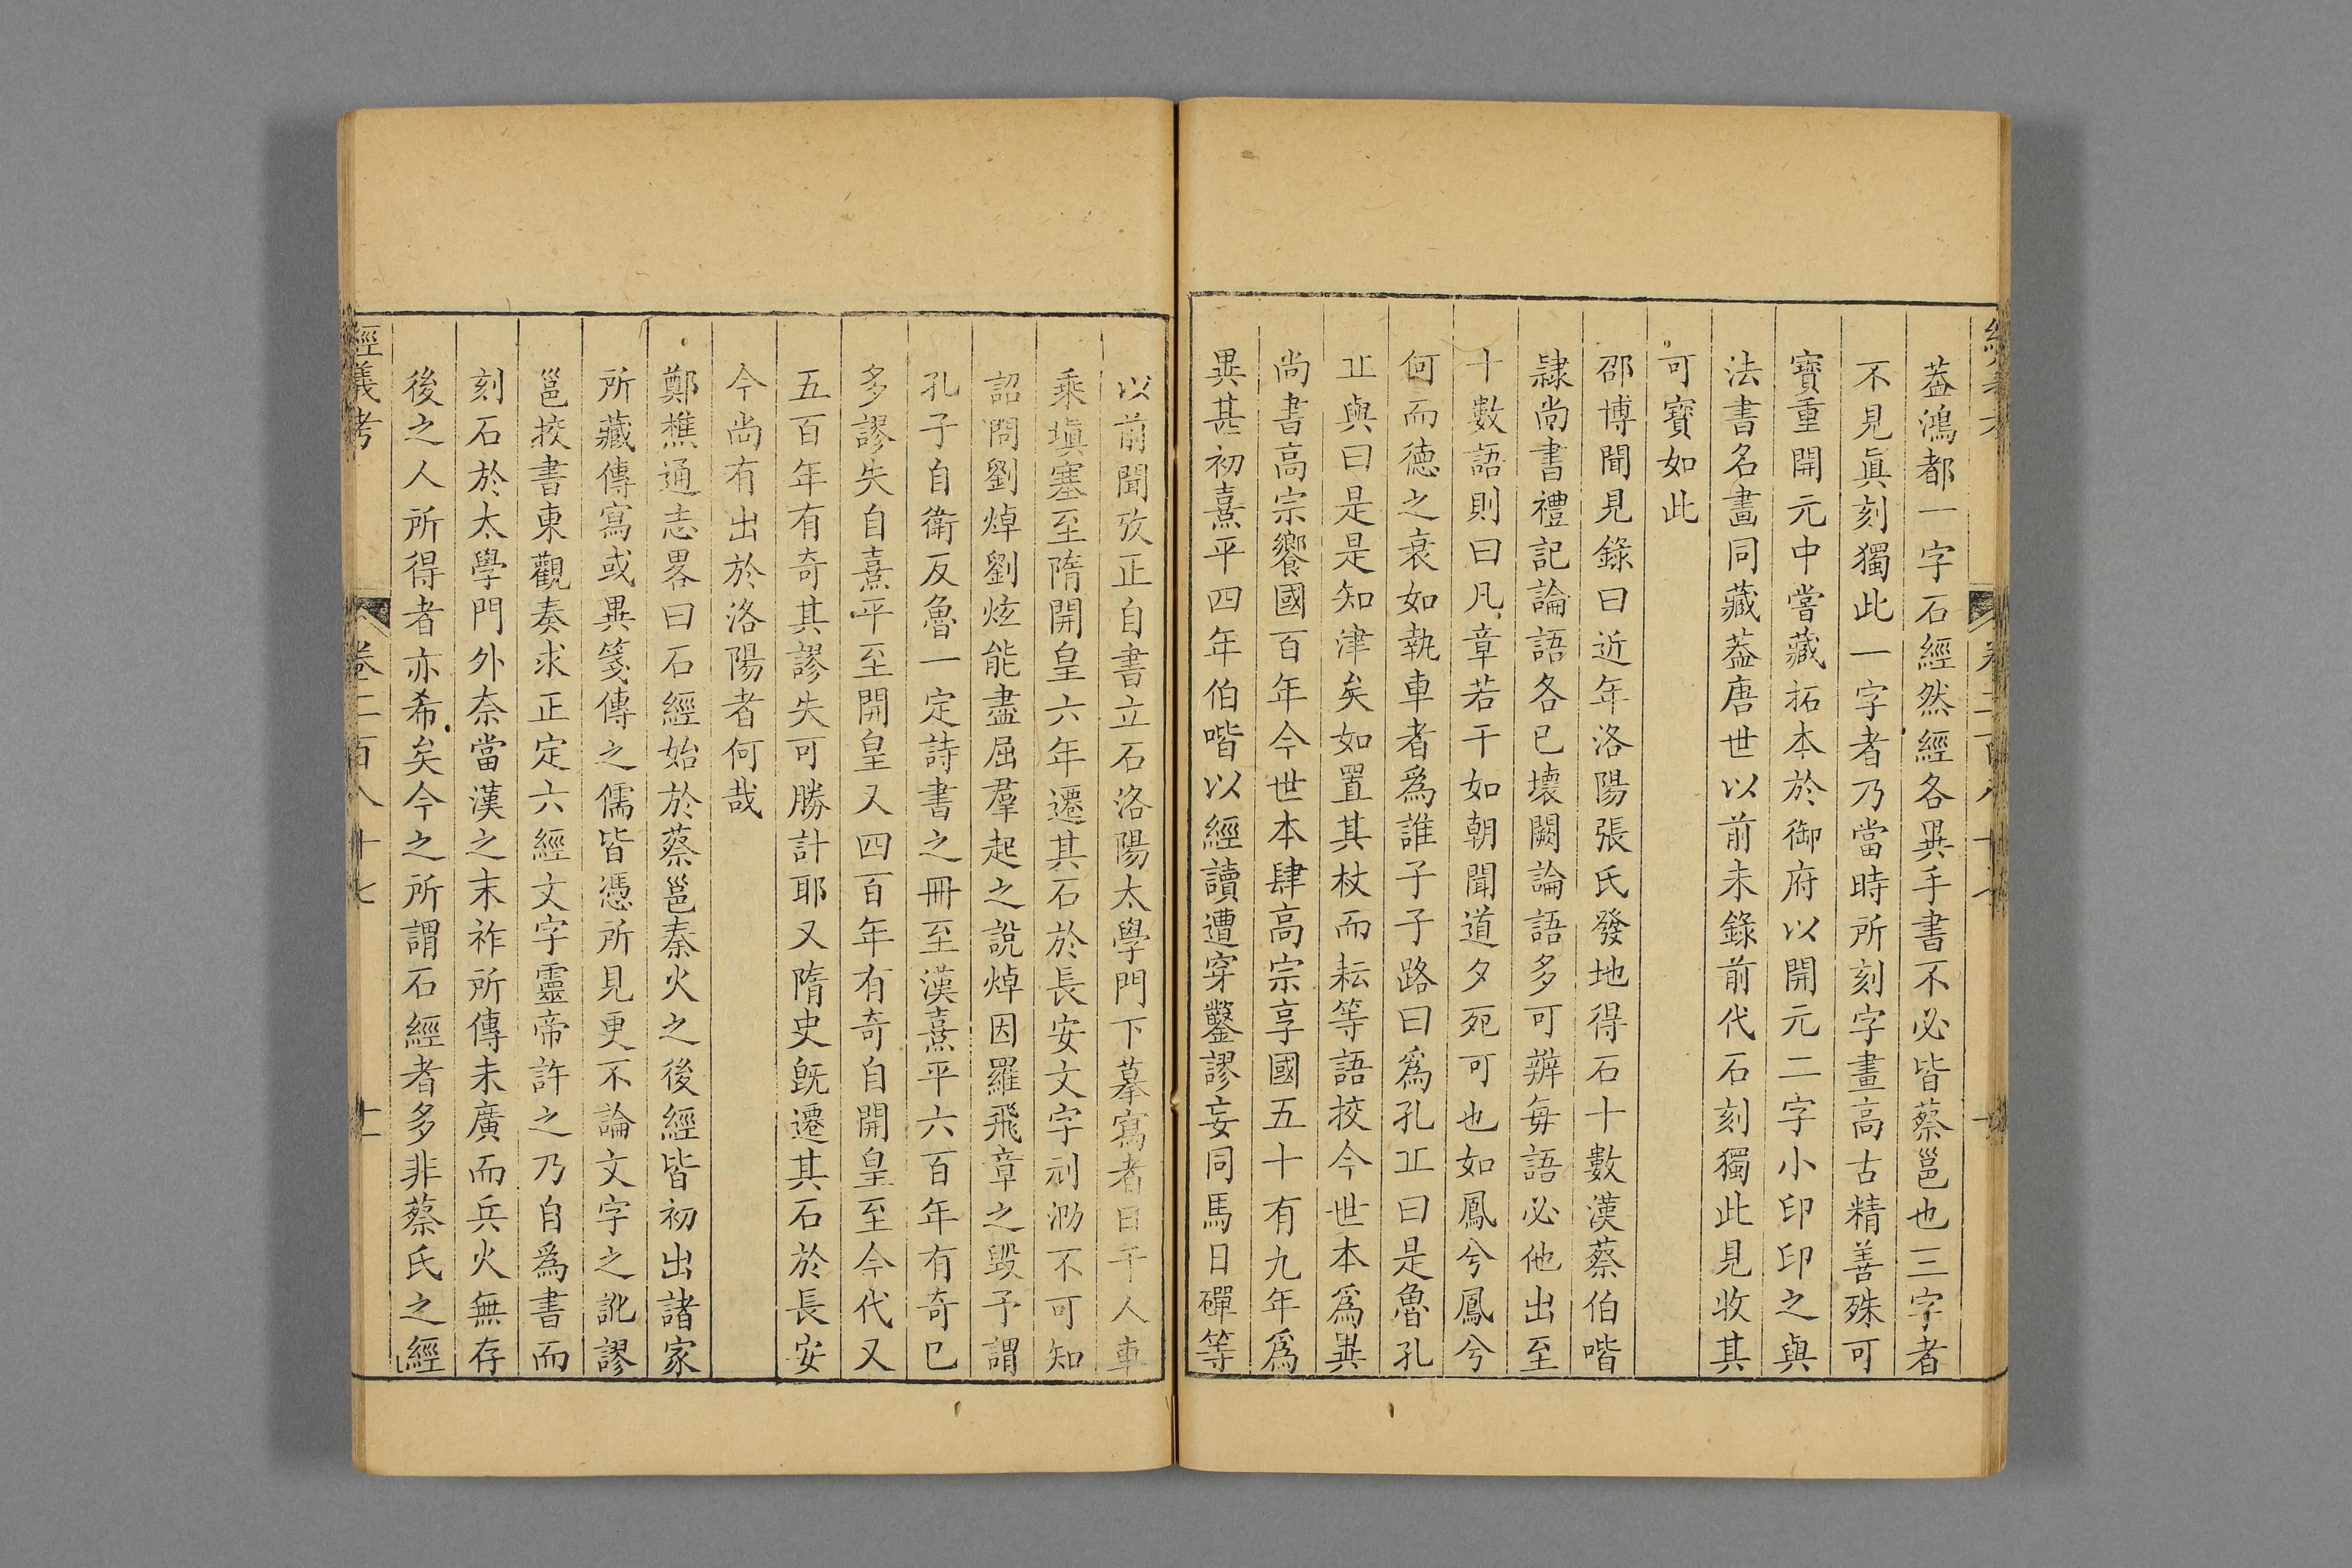 葢鴻都一字石經然經各異手書不必皆蔡邕也三字者
不見眞刻獨此一字者乃當時所刻字畫高古精善殊可
寶重開元中嘗藏拓本於御府以開元二字小印印之與
法書名畵同藏葢唐世以前未錄前代石刻獨此見收其
可寶如此
邵博聞見錄曰近年洛陽張氏發地得石十數漢蔡伯喈
隷尚書禮記論語各已壞闕論語多可辨每語必他出至
十數語則曰凡章若干如朝聞道夕死可也如鳳兮鳳兮
何而德之衰如執車者爲誰子子路曰爲孔丘曰是魯孔
丘與曰是是知津矣如置其杖而耘等語挍今世本爲異
尚書高宗饗國百年今世本肆高宗享國五十有九年爲
異甚初熹平四年伯喈以經讀遭穿鑿謬妄同馬日磾等
以前聞攷正自書立石洛陽太學門下摹寫者日千人車
乘塡塞至隋開皇六年遷其石於長安文字刓泐不可知
詔問劉焯劉炫能盡屈羣起之說焯因羅飛章之毀予謂
孔子自衛反魯一定詩書之冊至漢熹平六百年有奇已
多謬失自熹平至開皇又四百年有奇自開皇至今代又
五百年有奇其謬失可勝計耶又隋史旣遷其石於長安
今尚有出於洛陽者何哉
鄭樵通志畧曰石經始於蔡邕秦火之後經皆初出諸家
所藏傳寫或異箋傳之儒皆憑所見更不論文字之訛謬
邕挍書東觀奏求正定六經文字靈帝許之乃自爲書而
刻石於太學門外奈當漢之末祚所傳未廣而兵火無存
後之人所得者亦希矣今之所謂石經者多非蔡氏之經
經義考 卷二百八十七 十一